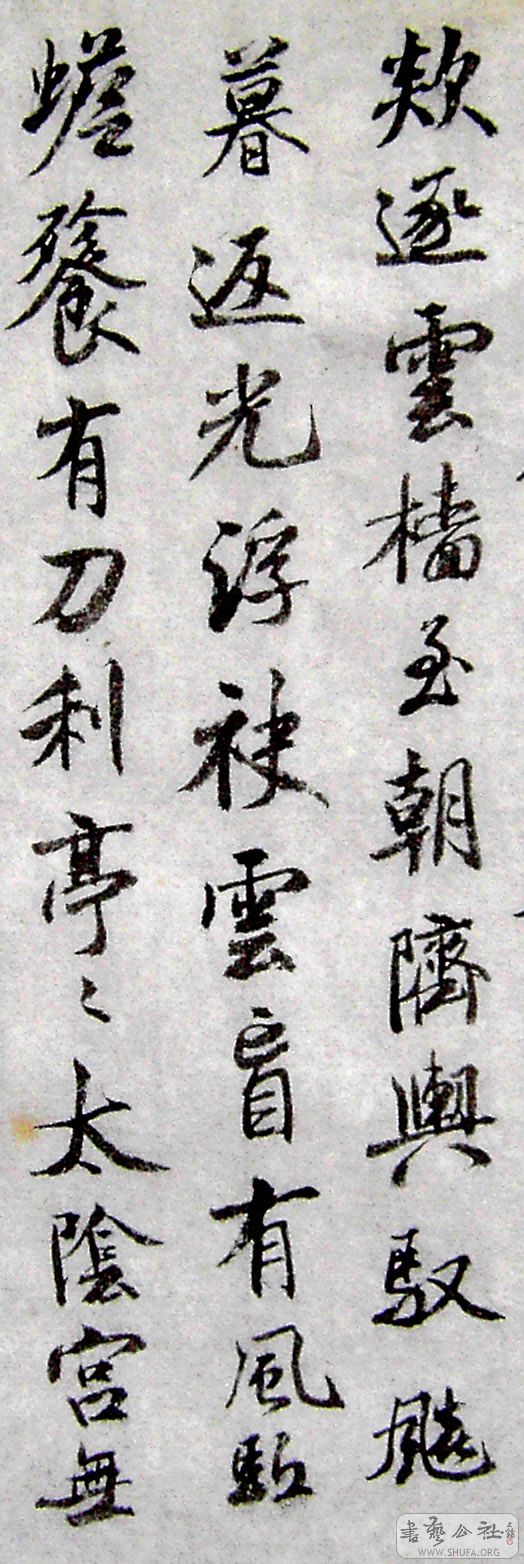 欻逐雲檣至朝隮輿馭飈
暮返光浮袂雲盲有風駈
蟾餐有刀利亭〻太陰宮無
書藝公社
WWW.SHUFA.ORG